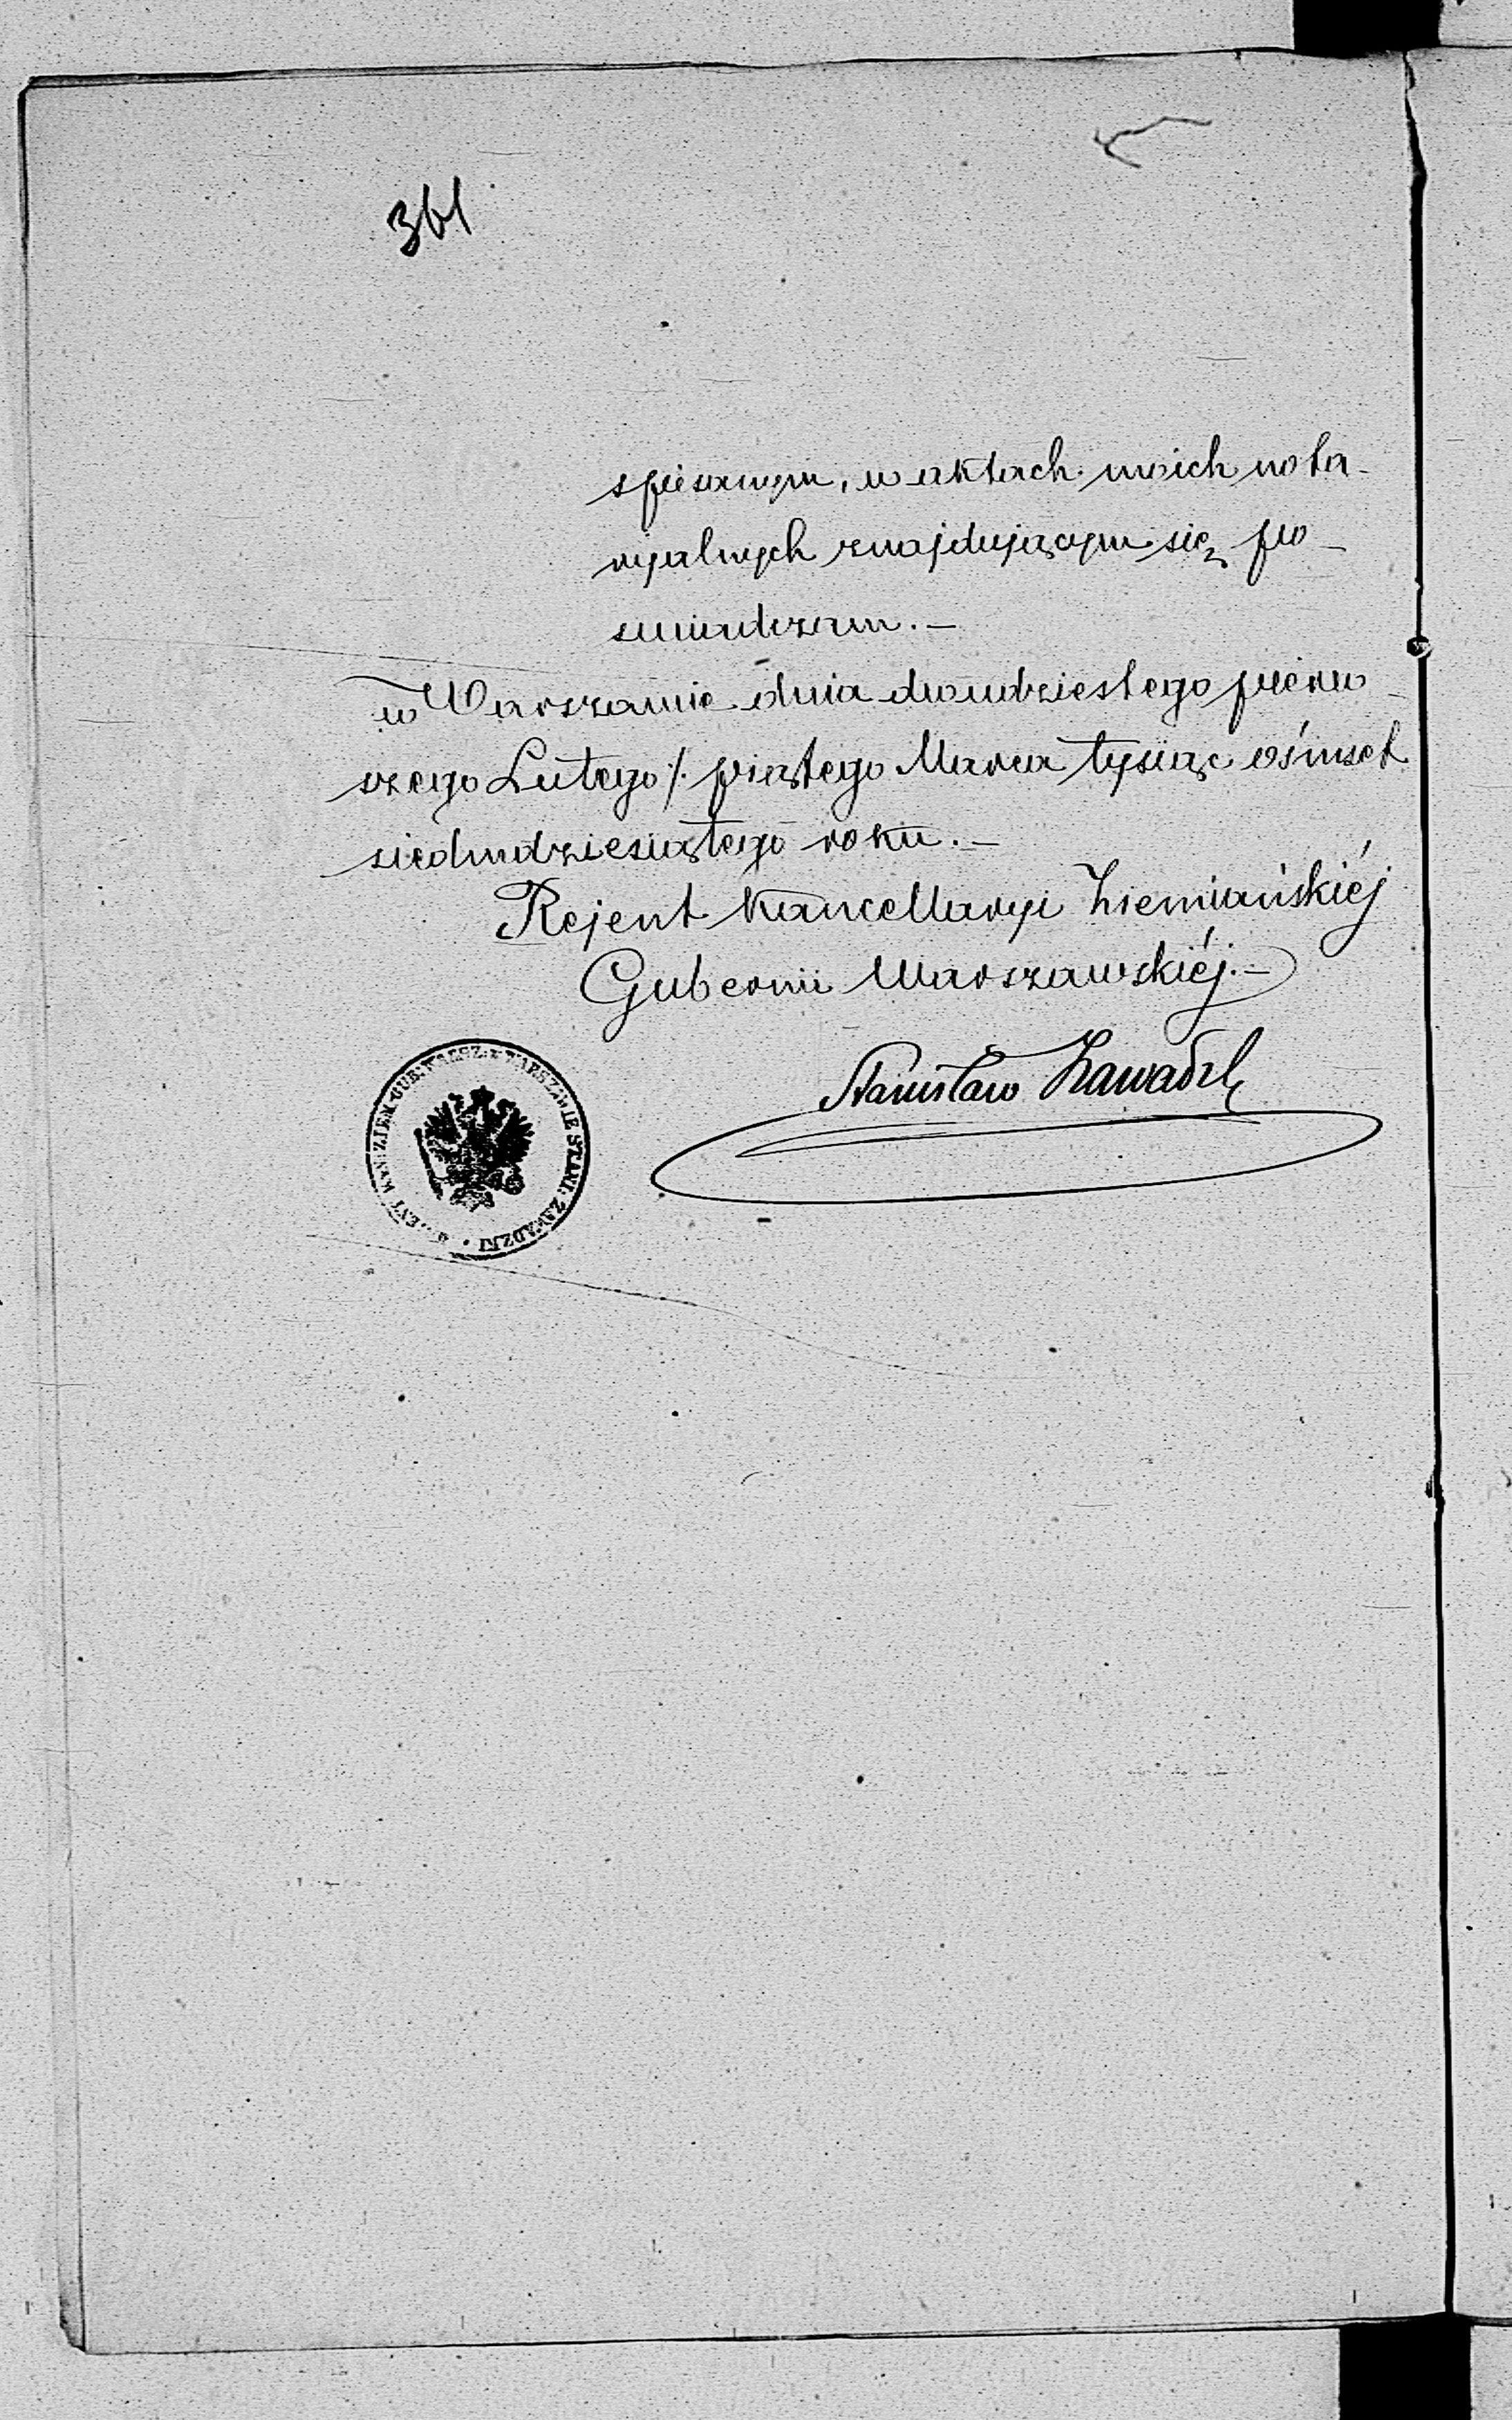 361
spisanym, w aktach moich nota-
ryalnych znajdującym się po-
świadczam.-
w Warszawie dnia dwudziestego pierw-
szego Lutego /. piątego Marca tysiąc ośmset
siedmdziesiątego roku.-
Rejent Kancellaryi Ziemiańskiéj
Gubernii Warszawskiéj.-
Stanisław Zawadzki
KAN: ZIEM. GUB: WARSZ: w WARSZAWIE STANI: ZAWADZKI